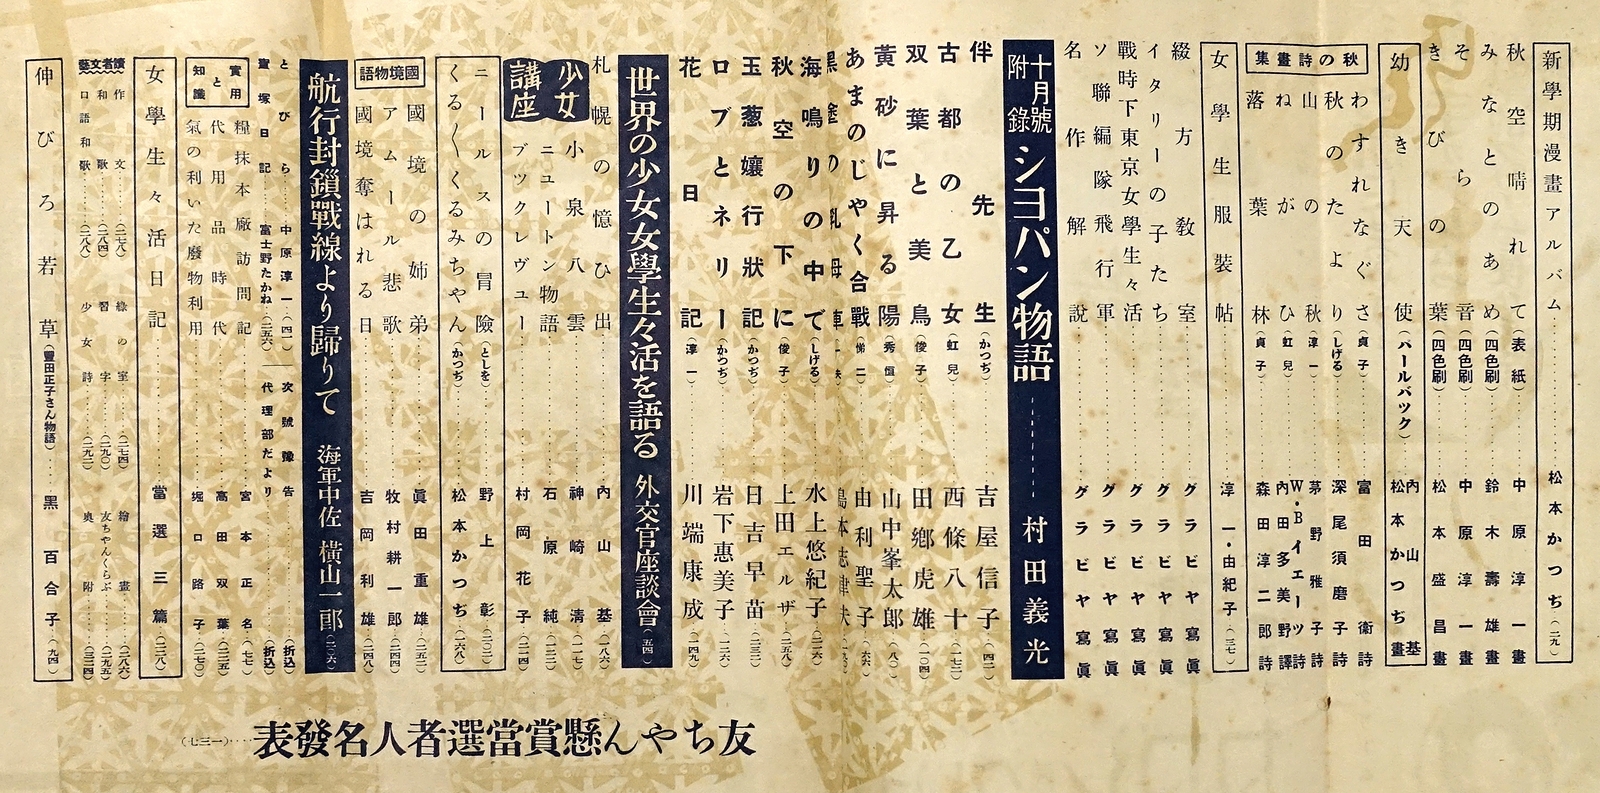 新學期漫畫アルバム………松本かつぢ(二九)
秋空晴れて(表紙)………中原淳一畫
みなとのあめ(四色刷)………鈴木壽雄畫
そらの音(四色刷)………中原淳一畫
きびの葉(四色刷)………松本盛昌畫
幼き天使(パールバツク)………內山基 松本かつぢ畫
秋の詩畫集
わすれなぐさ(貞子)………富田衞詩
秋のたより(しげる)………深尾須磨子詩
山の秋(淳一)………茅野雅子詩
ねがひ(虹兒)………W・Bイエーツ詩 內田多美野譯
落葉林(貞子)………森田淳二郎詩
女學生服裝帖………淳一・由紀子(三七)
綴方敎室………グラビヤ寫眞
イタリーの子たち………グラビヤ寫眞
戰時下東京女學生々活………グラビヤ寫眞
ソ聯編隊飛行軍………グラビヤ寫眞
名作解說………グラビヤ寫眞
十月號附錄 シヨパン物語………村田義光
伴先生(かつぢ)………吉屋信子(四二)
古都の乙女(虹兒)………西條八十(一七二)
双葉と美鳥(俊子)………田鄕虎雄(一〇四)
黃砂に昇る陽(秀恒)………山中峯太郎
あまのじやく合戰(悌二)………由利聖子
海鳴りの中で(しげる)………水上悠紀子
秋空の下に(俊子)………上田エルザ(二五八)
玉葱孃行狀記(かつぢ)………日吉早苗
ロブとネリー(かつぢ)………岩下惠美子
花日記(淳一)………川端康成(一四九)
世界の少女女學生々活を語る 外交官座談會(五四)
札幌の憶ひ出………內山基(一八六)
少女講座
小泉八雲………神崎淸(一一七)
ニユートン物語………石原純
ブツクレヴユー………村岡花子(二二四)
ニールスの冒險(としを)………野上彰(二〇二)
くる〱くるみちやん(かつぢ)………松本かつぢ(一六八)
國境物語
國境の姉弟………眞田重雄
アムール悲歌………牧村耕一郎(二四四)
國境奪はれる日………吉岡利雄(二四八)
航行封鎖戰線より歸りて 海軍中佐 橫山一郞(二〇六)
とびら………中原淳一(四一)―次號豫告………(折込)
寶塚日記………富士野たかね(二五六)―代理部だより………(折込)
實用と知識
糧抹本廠訪問記………宮本正名(七七)
代用品時代………高田双葉
氣の利いた廢物利用………堀口路子(二七〇)
女學生々活日記………當選三篇
讀者文藝
作文………綠の室………繪畫
和歌………習字………友ちやんくらぶ
口語和歌………少女詩………奧附
伸びろ若草(豐田正子さん物語)………黑百合子(九四)
友ちやん懸賞當選者人名發表………(一三七)